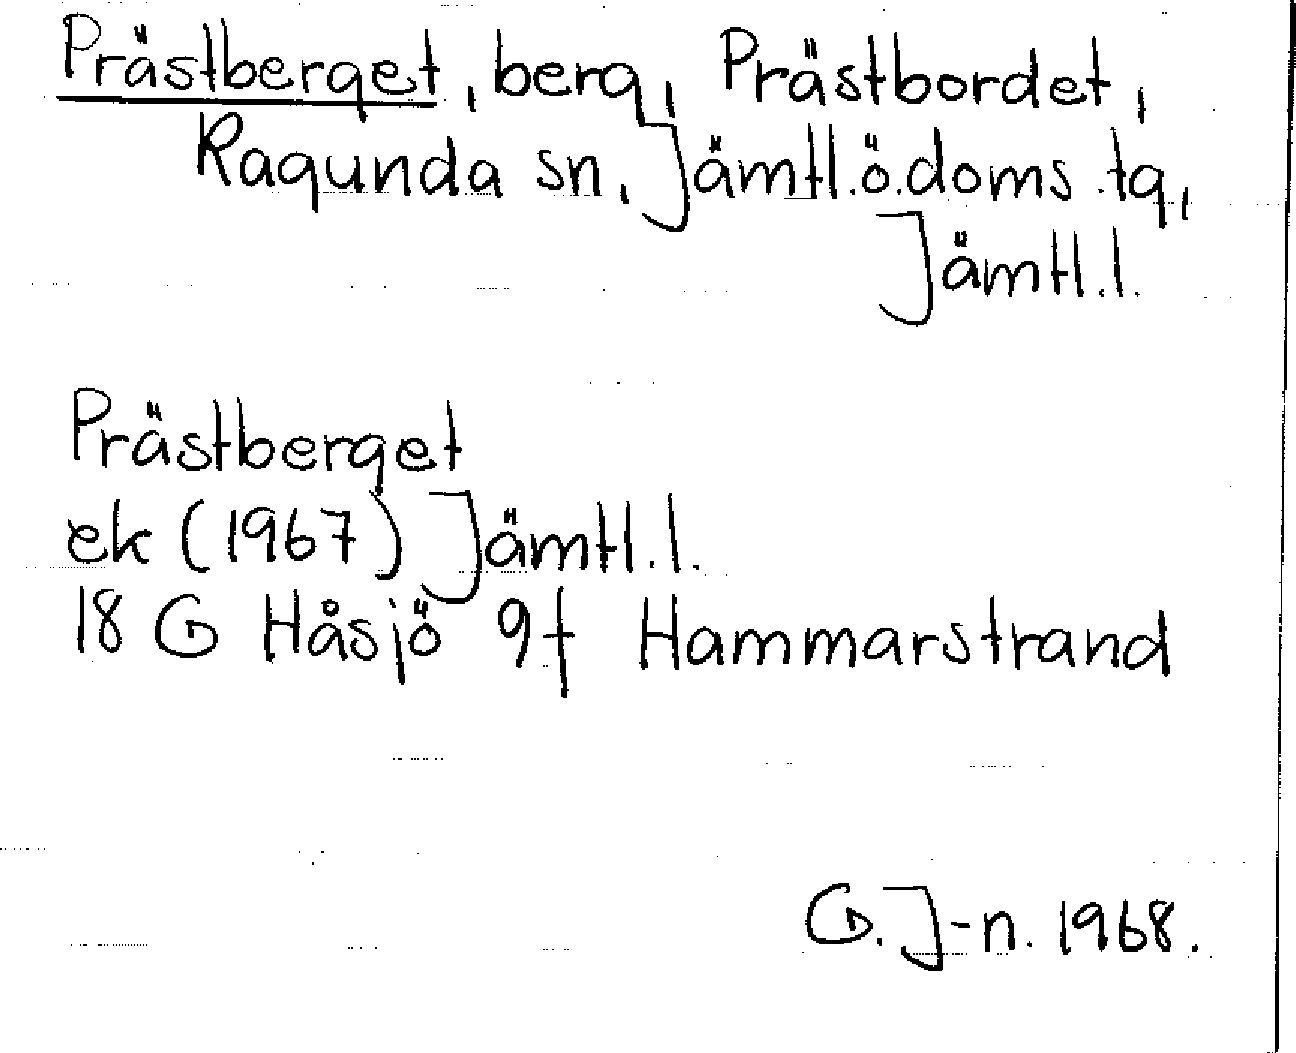 Prästberget, berg, Prästbordet,
Ragunda sn, Jämtl.ö.doms tg,
Jämtl.l.
Prästberget
ek (1967) Jämtl.l.
18 G Håsjö 9f Hammarstrand
G.J-n. 1968.